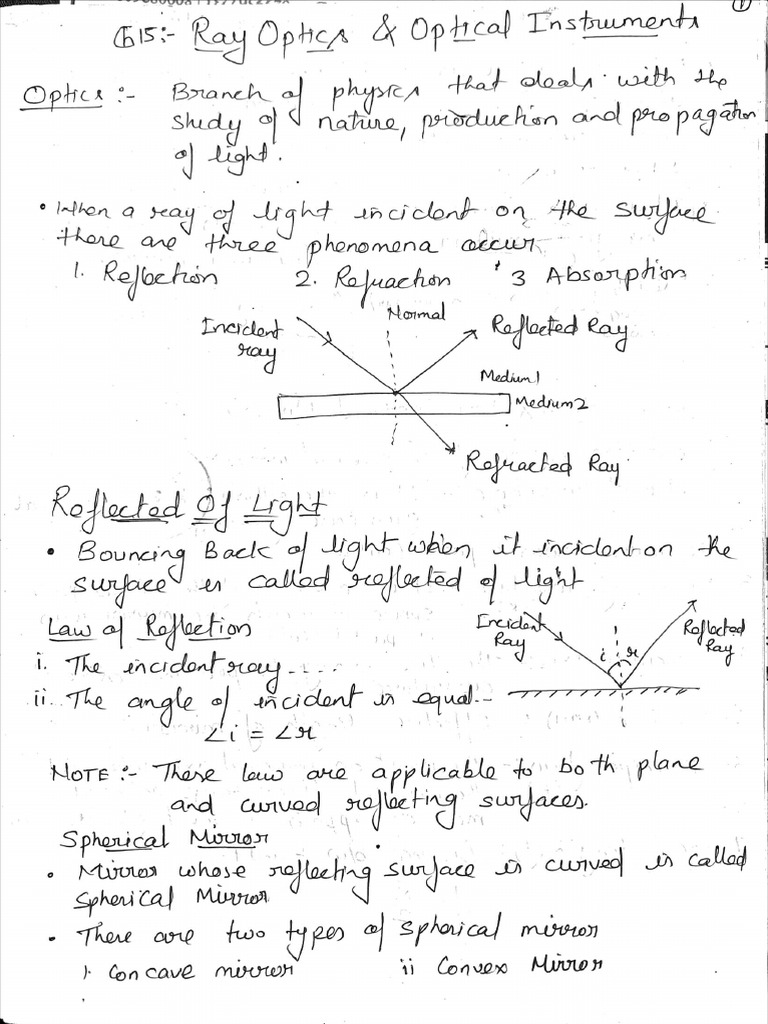 1
Ch15:- Ray Optics & Optical Instruments
Optics :- Branch of physics that deals with the
study of nature, production and propagation
of light.
• When a ray of light incident on the surface
there are three phenomena occur
1. Reflection 2. Refraction 3 Absorption
Incident
ray
Normal
Reflected Ray
Medium1
Medium2
Refracted Ray
Reflected Of Light
• Bouncing Back of light when it incident on the
surface is called reflected of light
Law of Reflection
i. The incident ray....
ii. The angle of incident is equal..
∠i = ∠r
Incident
Ray
i r
Reflected
Ray
NOTE :- These law are applicable to both plane
and curved reflecting surfaces.
Spherical Mirror
• Mirror whose reflecting surface is curved is called
Spherical Mirror
• There are two types of spherical mirror
i. Concave mirror ii Convex Mirror